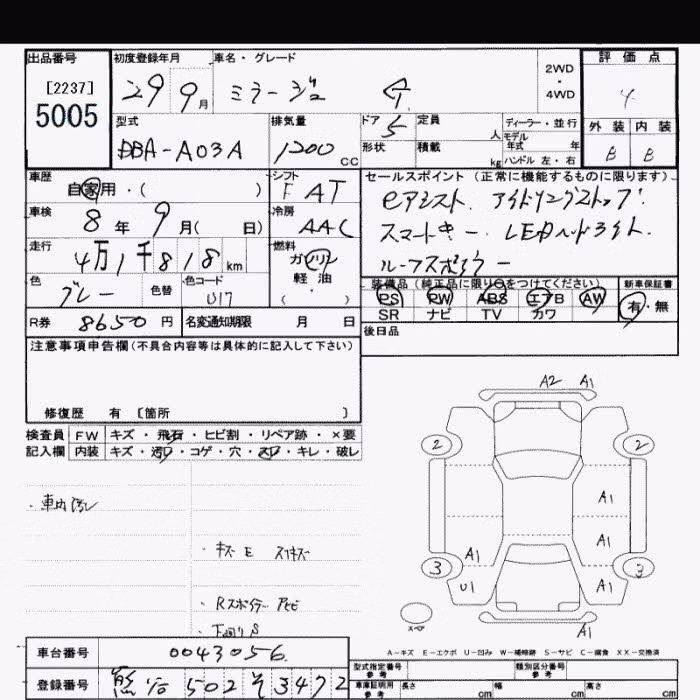 出品番号 初度登録年月 車名・グレード 2WD ・ 4WD 評価点
[2237]
5005
29 9月 ミラージュ G 4
型式 排気量 ドア 定員 人 ディーラー・並行 外装 内装
モデル年式 年
DBA-A03A 1200cc 5 形状 積載 kg ハンドル 左・右 B B
車歴 シフト セールスポイント (正常に機能するものに限ります)
自家用・( ) F AT eアシスト. アイドリングストップ.
車検 冷房
8年 9月( 日) AAC スマートキー. LEDヘッドライト.
走行 燃料
4万1千818km ガソリン 軽油 ・( ) ルーフスポイラー
色 色替 色コード 装備品(純正品に限り○をつけてください) 新車保証書
グレー U17 PS PW ABS エアB AW 有・無
SR ナビ TV カワ
R券 8650円 名変通知期限 月 日 後日品
注意事項申告欄(不具合内容等は具体的に記入して下さい)
修復歴 有 [箇所 ]
検査員 FW キズ・飛石・ヒビ割・リペア跡・×要
記入欄 内装 キズ・汚レ・コゲ・穴・スレ・キレ・破レ
・車内汚レ
・キズE スリキズ
・Rスポイラー
・下廻りS
A2 A1
2 2
A1
A1 A1
3 3
U1 A1
A1
スペア
A-キズ E-エクボ U-凹み W-補修跡 S-サビ C-腐食 XX-交換済
車台番号 0043056
登録番号 502 そ 3472
型式指定番号 参考 類別区分番号 参考
車庫証明用 参考 長さ cm 幅 cm 高さ cm